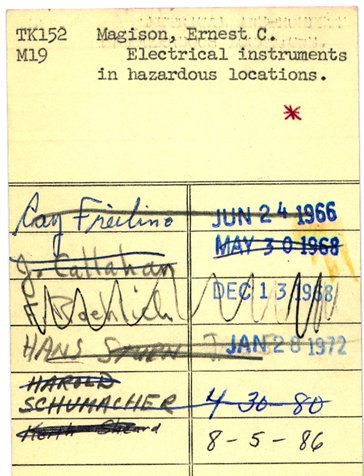 TK152 Magison, Ernest C.
M19 Electrical instruments
in hazardous locations.
*
Ray Freilino JUN 24 1966
J. Callahan MAY 30 1968
DEC 13 1968
HANS STURN JAN 28 1972
HAROLD
SCHUMACHER 4-30-80
Keith 8-5-86